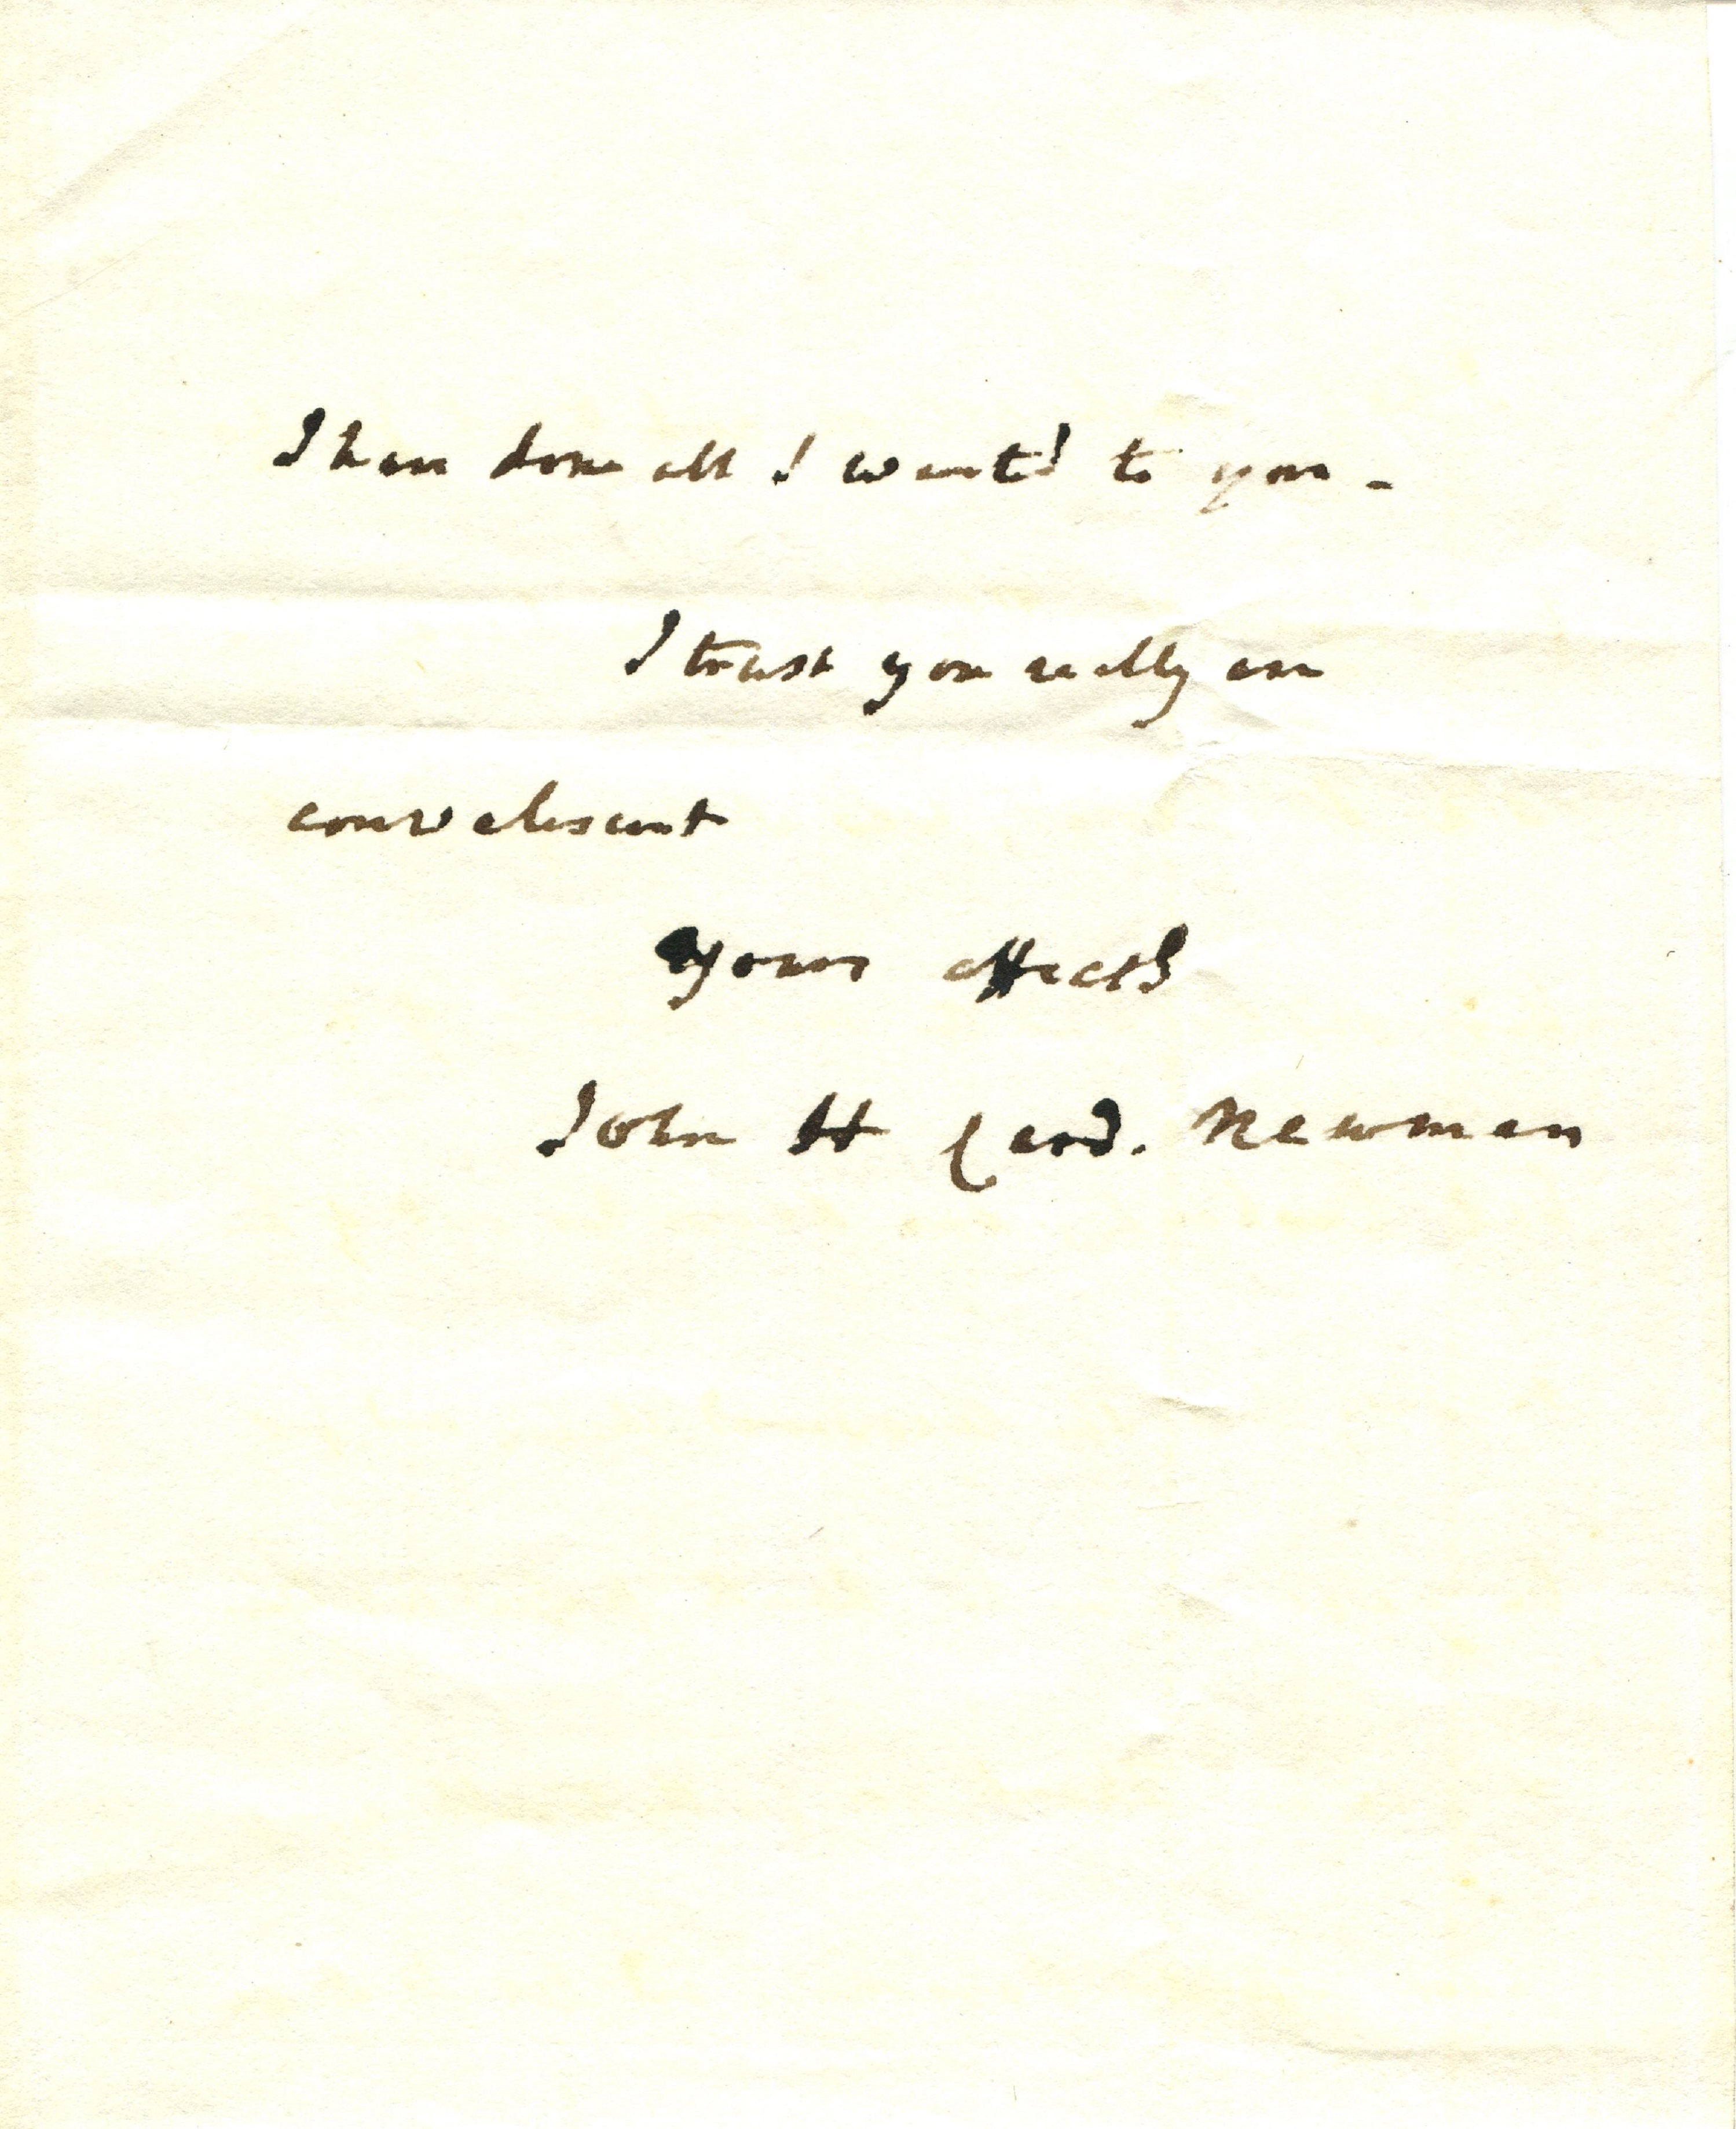 I have done all I wanted to you -
I trust you really are
convalescent
Yours affectly
John H Card. Newman